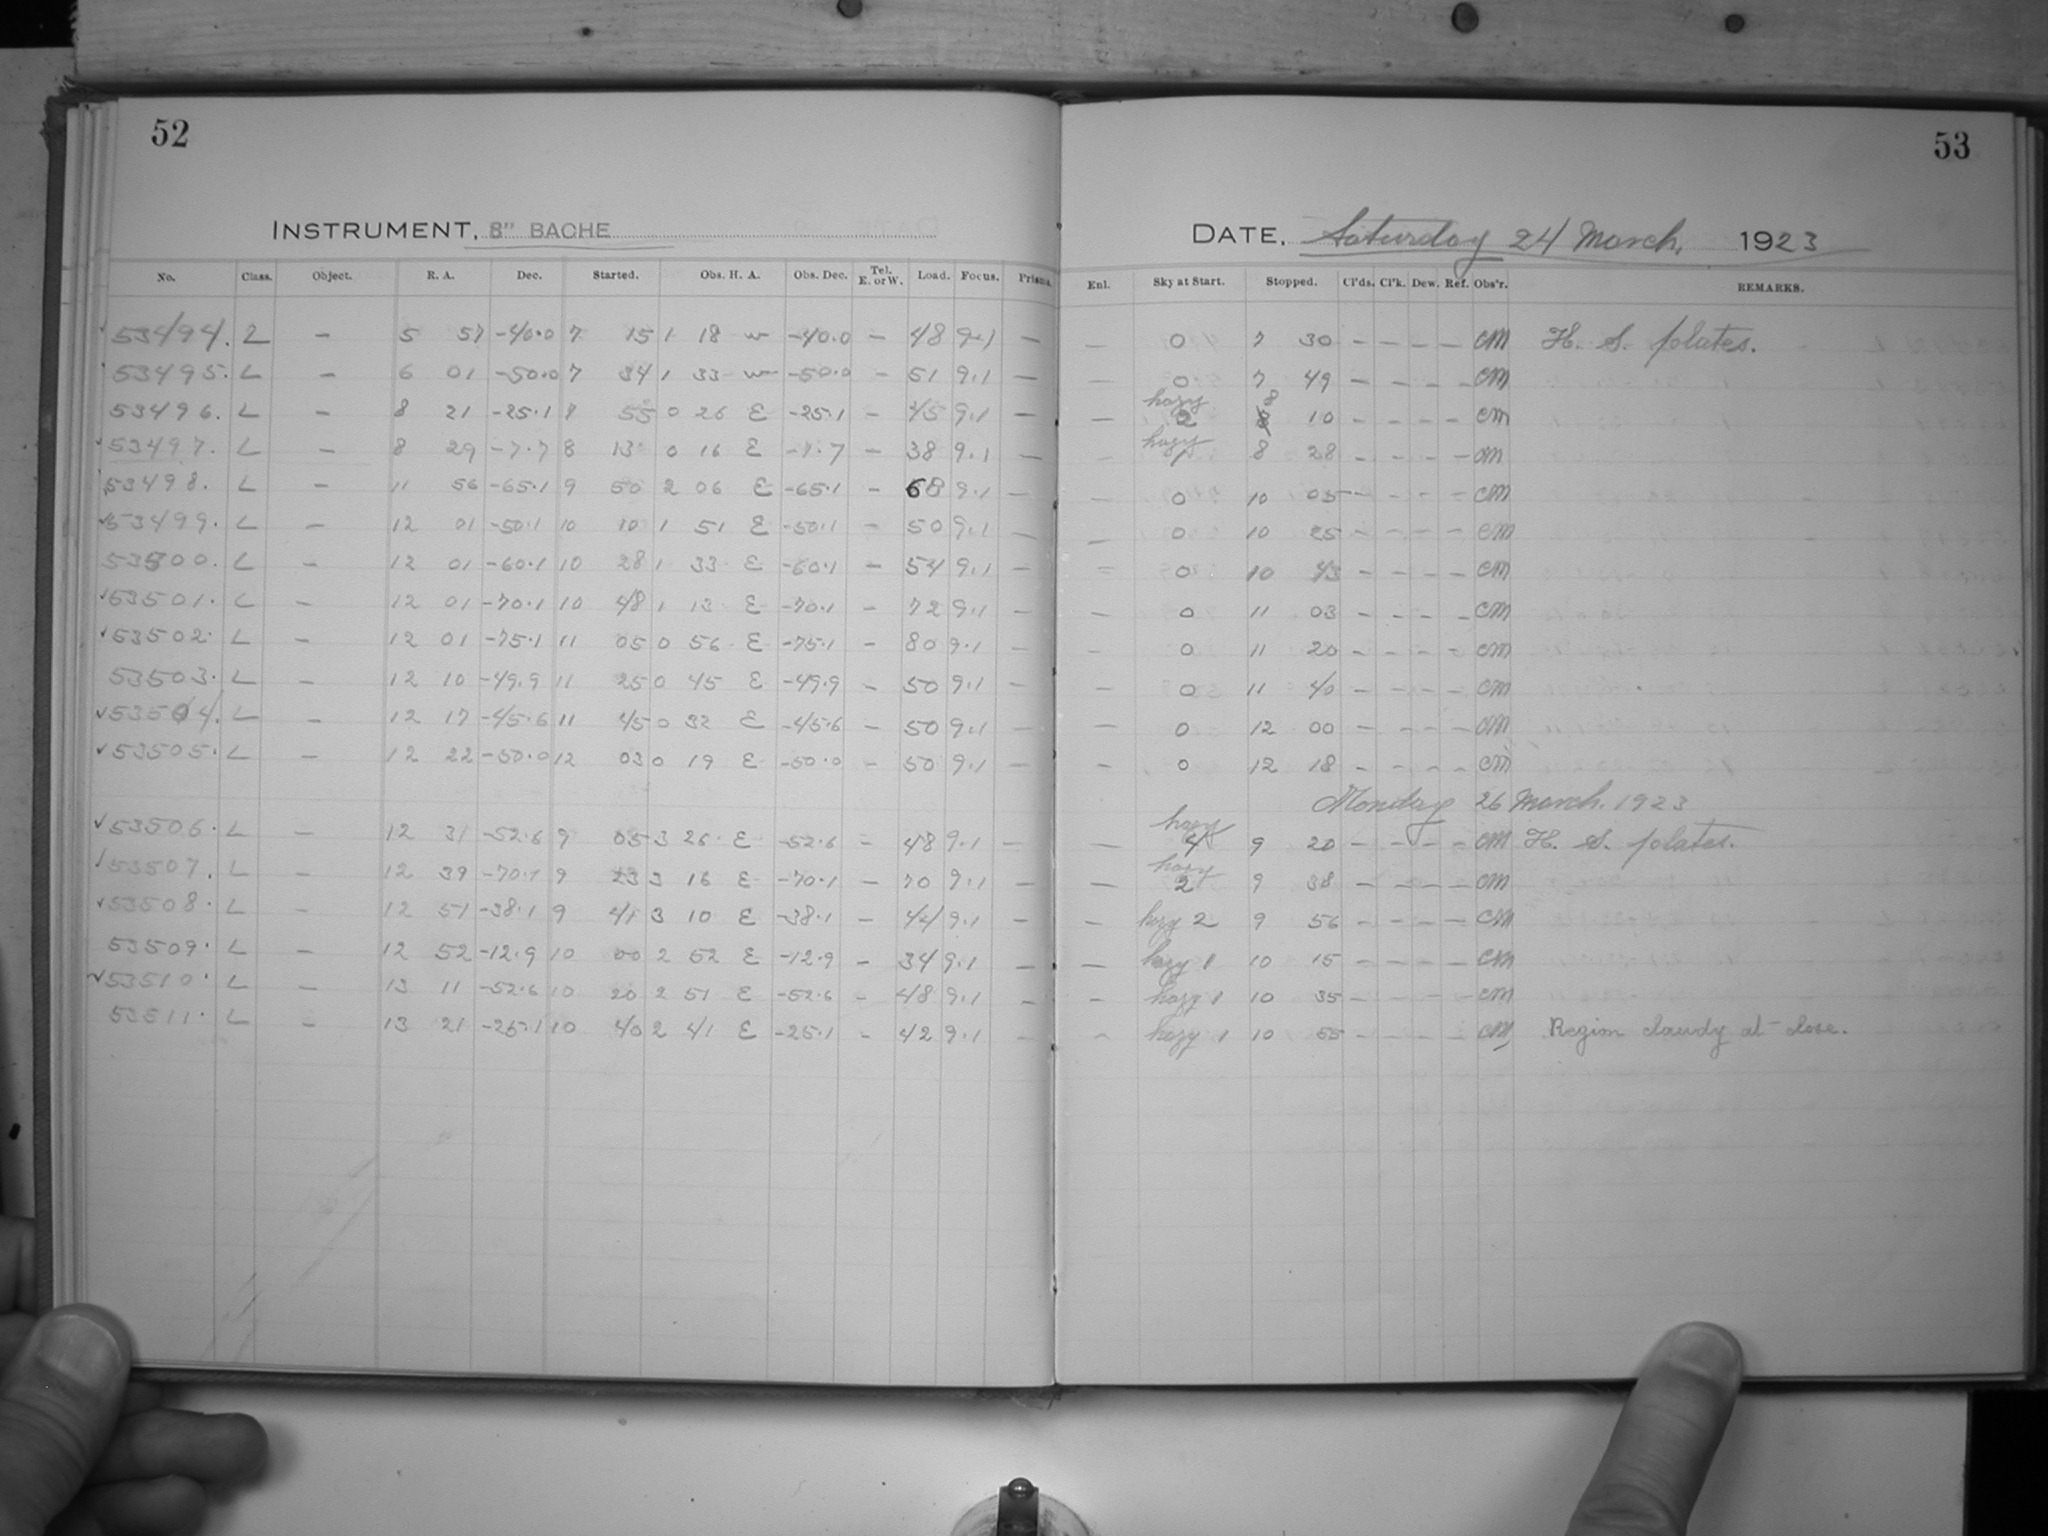 52
53
INSTRUMENT, 8" BACHE
DATE, Saturday 24 March, 1923
No. Class. Object. R. A. Dec. Started. Obs. H. A. Obs. Dec. Tel. E. or W. Load. Focus. Prisms. Enl. Sky at Start. Stopped. Cl'ds. Cl'k. Dew. Ref. Obs'r. REMARKS.
✓53494. L — 5 57 -40.0 7 15 1 18 w -40.0 — 48 9.1 — — 0 7 30 — — — — CM H. S. plates.
53495. L — 6 01 -50.0 7 34 1 33 w -50.0 — 51 9.1 — — 0 7 49 — — — — CM
53496. L — 8 21 -25.1 7 55 0 26 E -25.1 — 45 9.1 — — hazy 2 8 10 — — — — CM
✓53497. L — 8 29 -7.7 8 13 0 16 E -7.7 — 38 9.1 — — hazy 1 8 28 — — — — CM
53498. L — 11 56 -65.1 9 50 2 06 E -65.1 — 68 9.1 — — 0 10 05 — — — — CM
✓53499. L — 12 01 -50.1 10 10 1 51 E -50.1 — 50 9.1 — — 0 10 25 — — — — CM
53500. L — 12 01 -60.1 10 28 1 33 E -60.1 — 54 9.1 — — 0 10 43 — — — — CM
✓53501. L — 12 01 -70.1 10 48 1 13 E -70.1 — 72 9.1 — — 0 11 03 — — — — CM
✓53502. L — 12 01 -75.1 11 05 0 56 E -75.1 — 80 9.1 — — 0 11 20 — — — — CM
53503. L — 12 10 -49.9 11 25 0 45 E -49.9 — 50 9.1 — — 0 11 40 — — — — CM
✓53504. L — 12 17 -45.6 11 45 0 32 E -45.6 — 50 9.1 — — 0 12 00 — — — — CM
✓53505. L — 12 22 -50.0 12 03 0 19 E -50.0 — 50 9.1 — — 0 12 18 — — — — CM
Monday 26 March. 1923
✓53506. L — 12 31 -52.6 9 05 3 26 E -52.6 — 48 9.1 — — hazy 4 9 20 — — — — CM H. S. plates.
✓53507. L — 12 39 -70.1 9 23 3 16 E -70.1 — 70 9.1 — — hazy 2 9 38 — — — — CM
✓53508. L — 12 51 -38.1 9 41 3 10 E -38.1 — 44 9.1 — — hazy 2 9 56 — — — — CM
53509. L — 12 52 -12.9 10 00 2 52 E -12.9 — 34 9.1 — — hazy 1 10 15 — — — — CM
✓53510. L — 13 11 -52.6 10 20 2 51 E -52.6 — 48 9.1 — — hazy 1 10 35 — — — — CM
53511. L — 13 21 -25.1 10 40 2 41 E -25.1 — 42 9.1 — — hazy 1 10 55 — — — — CM Region cloudy at close.